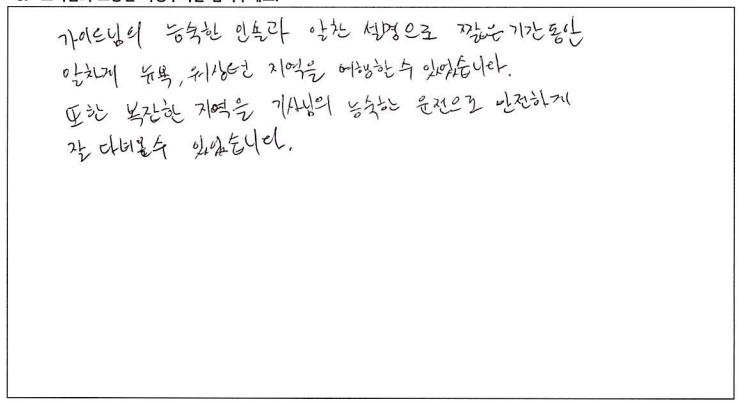 가이드님의 능숙한 인솔과 알찬 설명으로 짧은 기간동안
알차게 뉴욕, 워싱턴 지역을 여행할 수 있었습니다.
또한 복잡한 지역을 기사님의 능숙한 운전으로 안전하게
잘 다녀올 수 있었습니다.